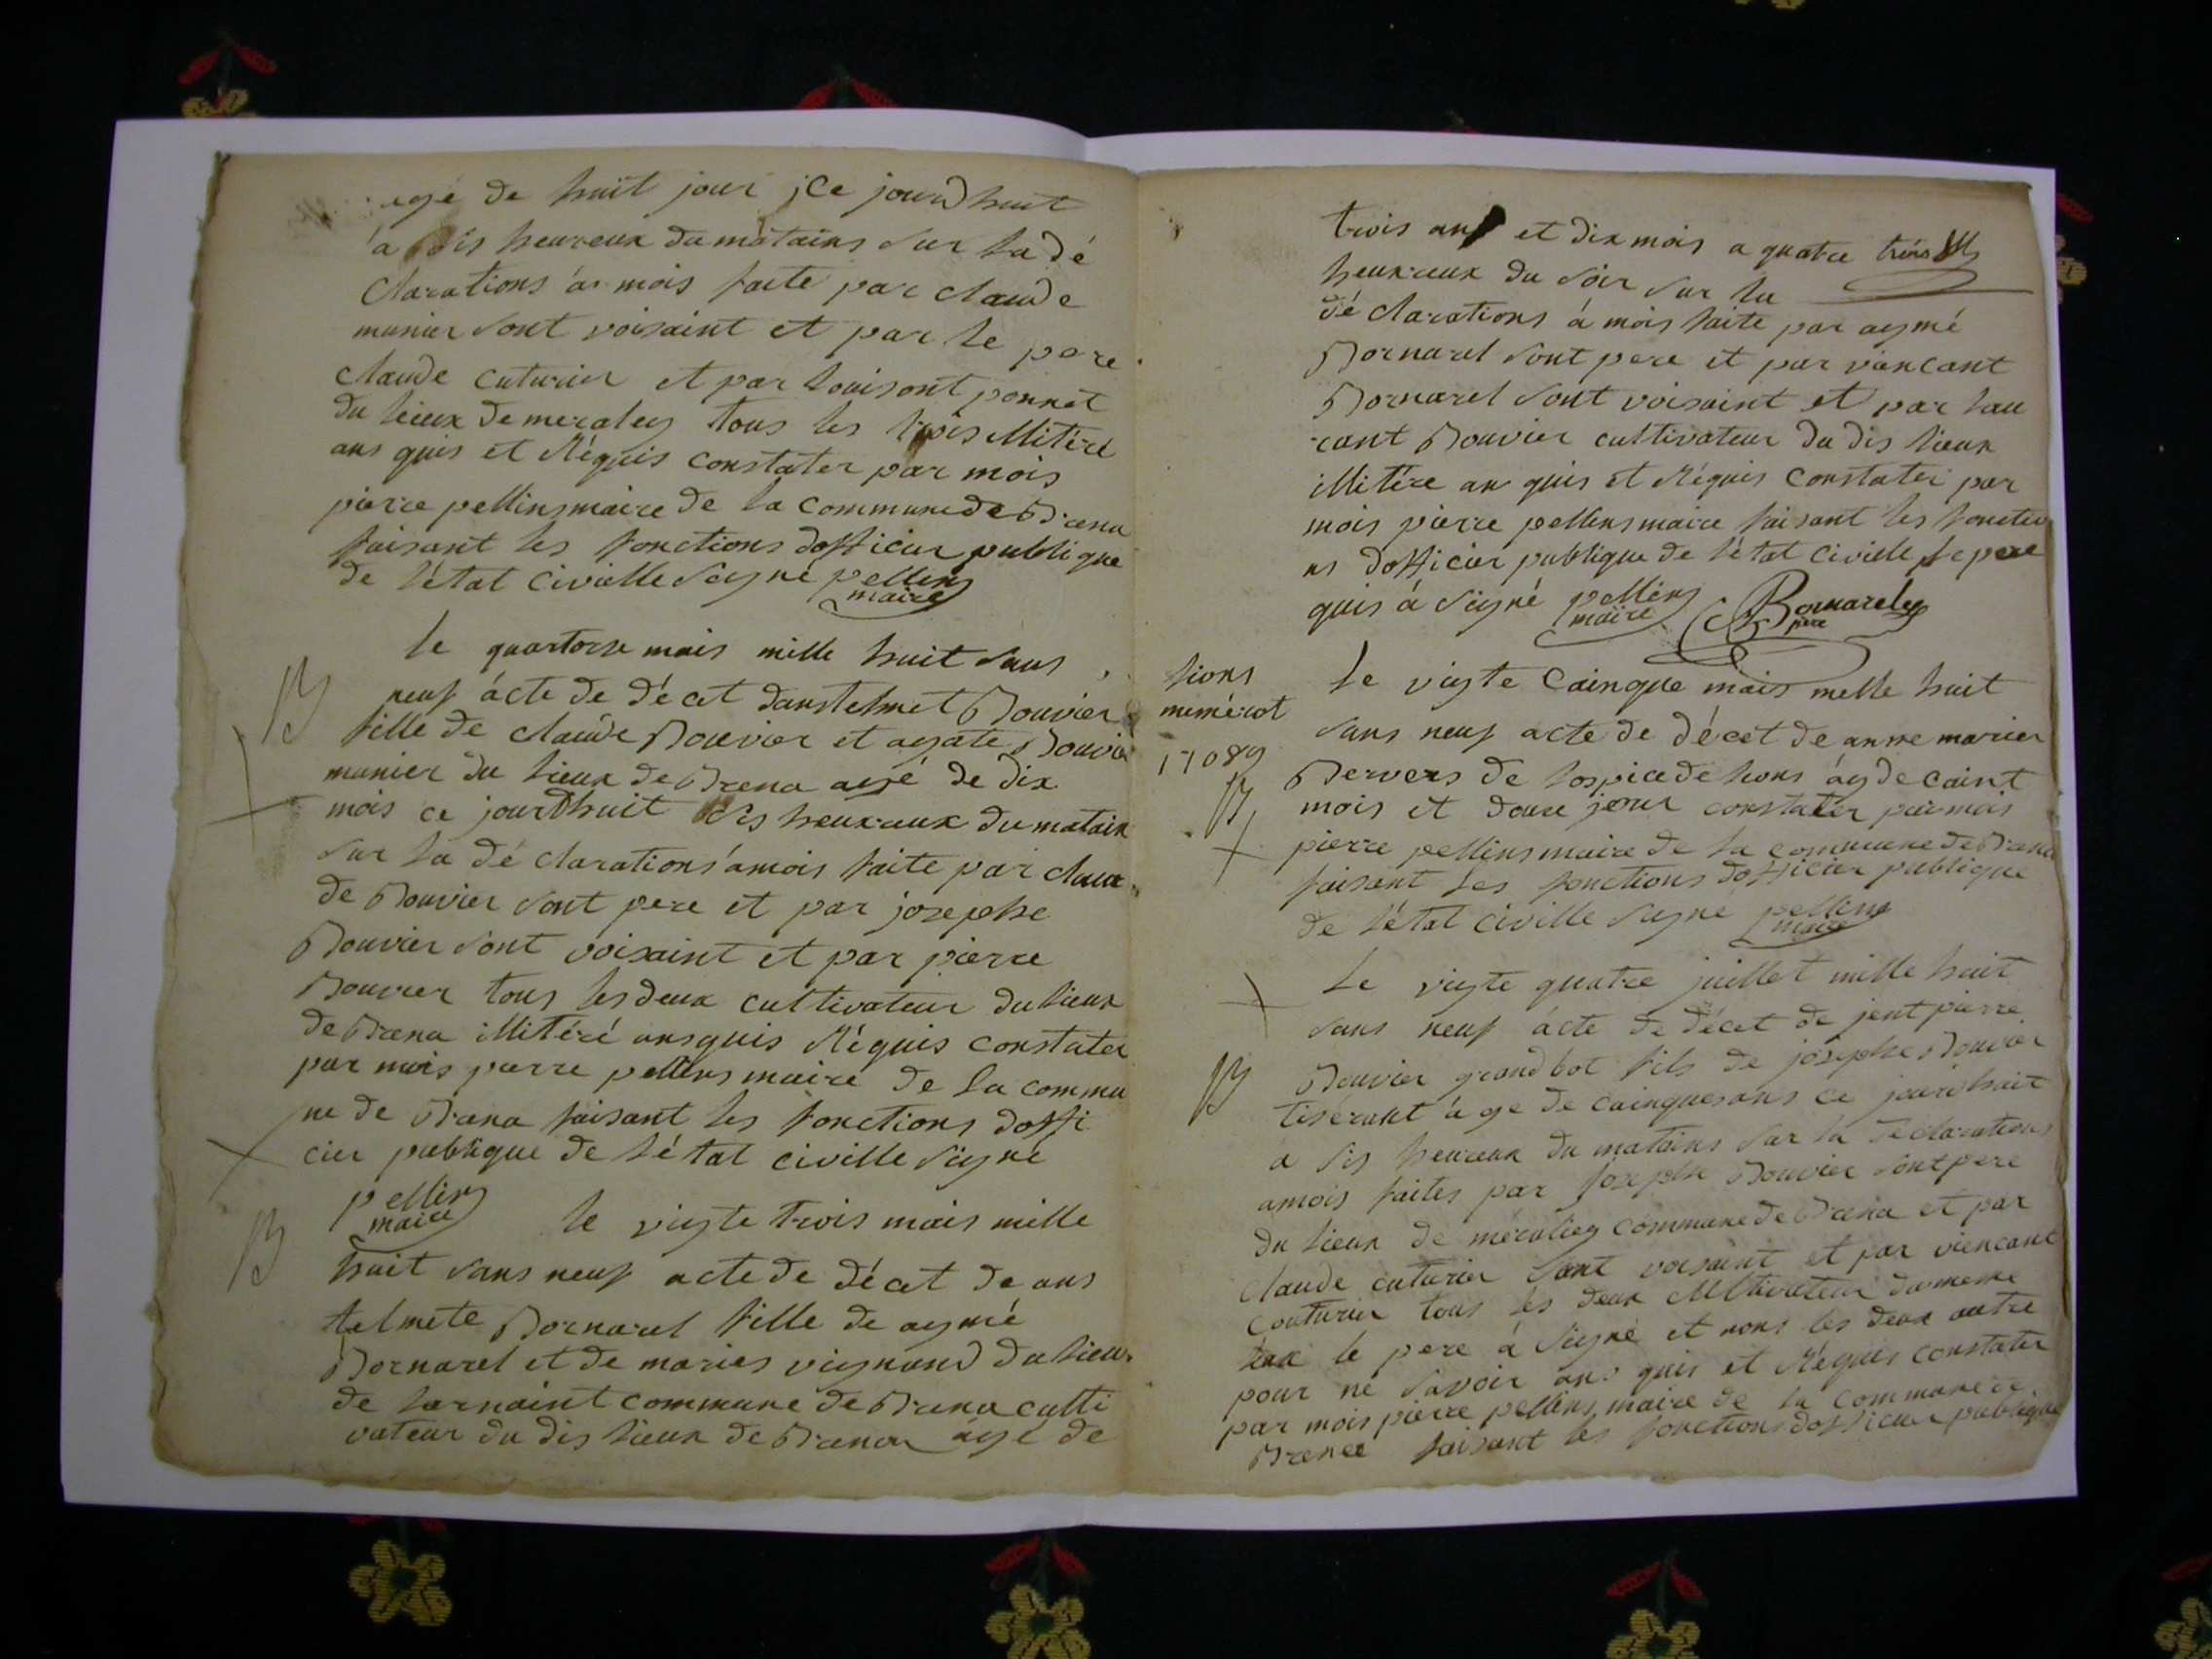 age de huit jour jce jourdhuit
à sis heureux du matains sur la dé
clarations ar mois faite par claude
munier sont voisaint et par le pere
claude cuturier et par louisont ponnet
du lieux de meraley tous les trois illitéré
ans quis et Réquis constater par mois
pierre pellins maire de la commune de Brena
faisant les fonctions dofficier publique
de létat civille signé pellins
maire
le quartorse mais mille huit sans
neuf acte de décet danstelmet Bouvier
fille de claude Bouvier et agate Bouvier
munier du lieux de Brena agé de dix
mois ce jourdhuit sis heuraux du matain
sur la dé clarations amois faite par clau
de Bouvier sont pere et par josephe
Bouvier sont voisaint et par pierre
Bouvier tous les deux cultivateur du lieux
de Brena illitéré ansquis Réquis constater
par mois pierre pellins maire de la commu
ne de Brena faisant les fonctions doffi
cier publique de létat civille signé
pellins
maire
le vigte trois mais mille
huit sans neuf acte de décet de ans
telmete Bornarel fille de aymé
Bornarel et de maries vignand du lieux
de larnaint commune de Brena culti
vateur du dis lieux de Brena age de
trois ans et dix mois a quatre
heuraux du soir sur la
dé clarations á mois faite par aymé
Bornarel sont pere et par vancant
Bornarel sont voisaint et par lau
rant Bouvier cultivateur du dis lieux
illitére an quis et Réquis constater par
mois pierre pellins maire faisant les fonctio
ns dofficier publique de létat civille le pere
quis á signé pellins Bornarel
maire père
lions
numérot
17089
le vigte cainque mais mille huit
sans neuf acte de décet de anne marier
Dervers de lospice de lions ág de caint
mois et douze jour constater par mois
pierre pellins maire de la commune de Brena
faisant les fonctions dofficier publique
de létat civille signe pellins
maire
Le vigte quatre juillet mille huit
sans neuf acte de décet de jent pierre
Bouvier grand bot fils de josephe Bouvier
tiserant age de cainquesans ce jourdhuit
a sis heureux du matains sur la declarations
amois faites par josephe Bouvier sont pere
du lieux de méraliey commune de Brena et par
claude cuturier sont voisaint et par viencant
couturier tous les deux cultivateur du meme
le pere á signé et nons les deux autre
pour né savoir ans quis et Réquis constater
par mois pierre pellins maire de la commune de
Brenee faisant les fonctions dofficier publique